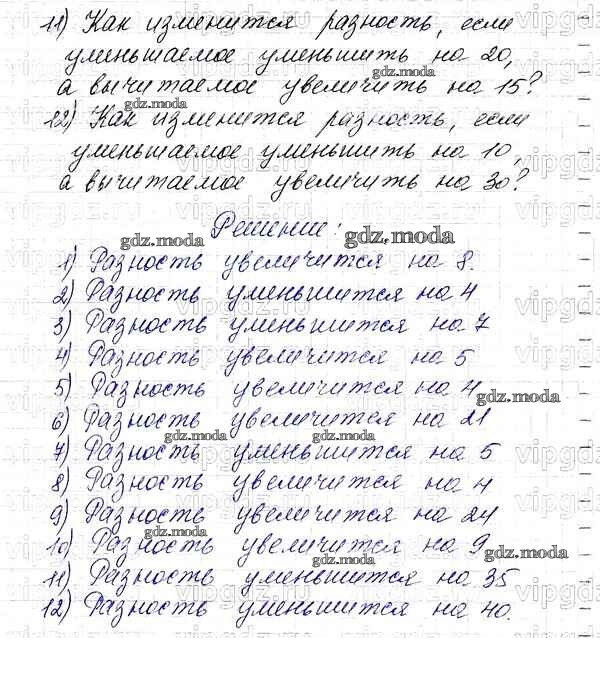 11) Как изменится разность, если
уменьшаемое уменьшить на 20,
gdz.moda
а вычитаемое увеличить на 15?
gdz.moda
12) Как изменится разность, если
уменьшаемое уменьшить на 10,
а вычитаемое увеличить на 30?
Решение:
gdz.moda
gdz.moda
1) Разность увеличится на 8.
2) Разность уменьшится на 4
3) Разность уменьшится на 7
4) Разность увеличится на 5
5) Разность увеличится на 4
gdz.moda
6) Разность увеличится на 21
gdz.moda
gdz.moda
7) Разность уменьшится на 5
8) Разность увеличится на 4
9) Разность увеличится на 24
10) Разность увеличится на 9
gdz.moda
gdz.moda
gdz.moda
11) Разность уменьшится на 35
12) Разность уменьшится на 40.